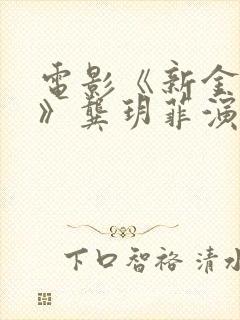 電影《新金
》龔玥菲演
下口智裕 清水